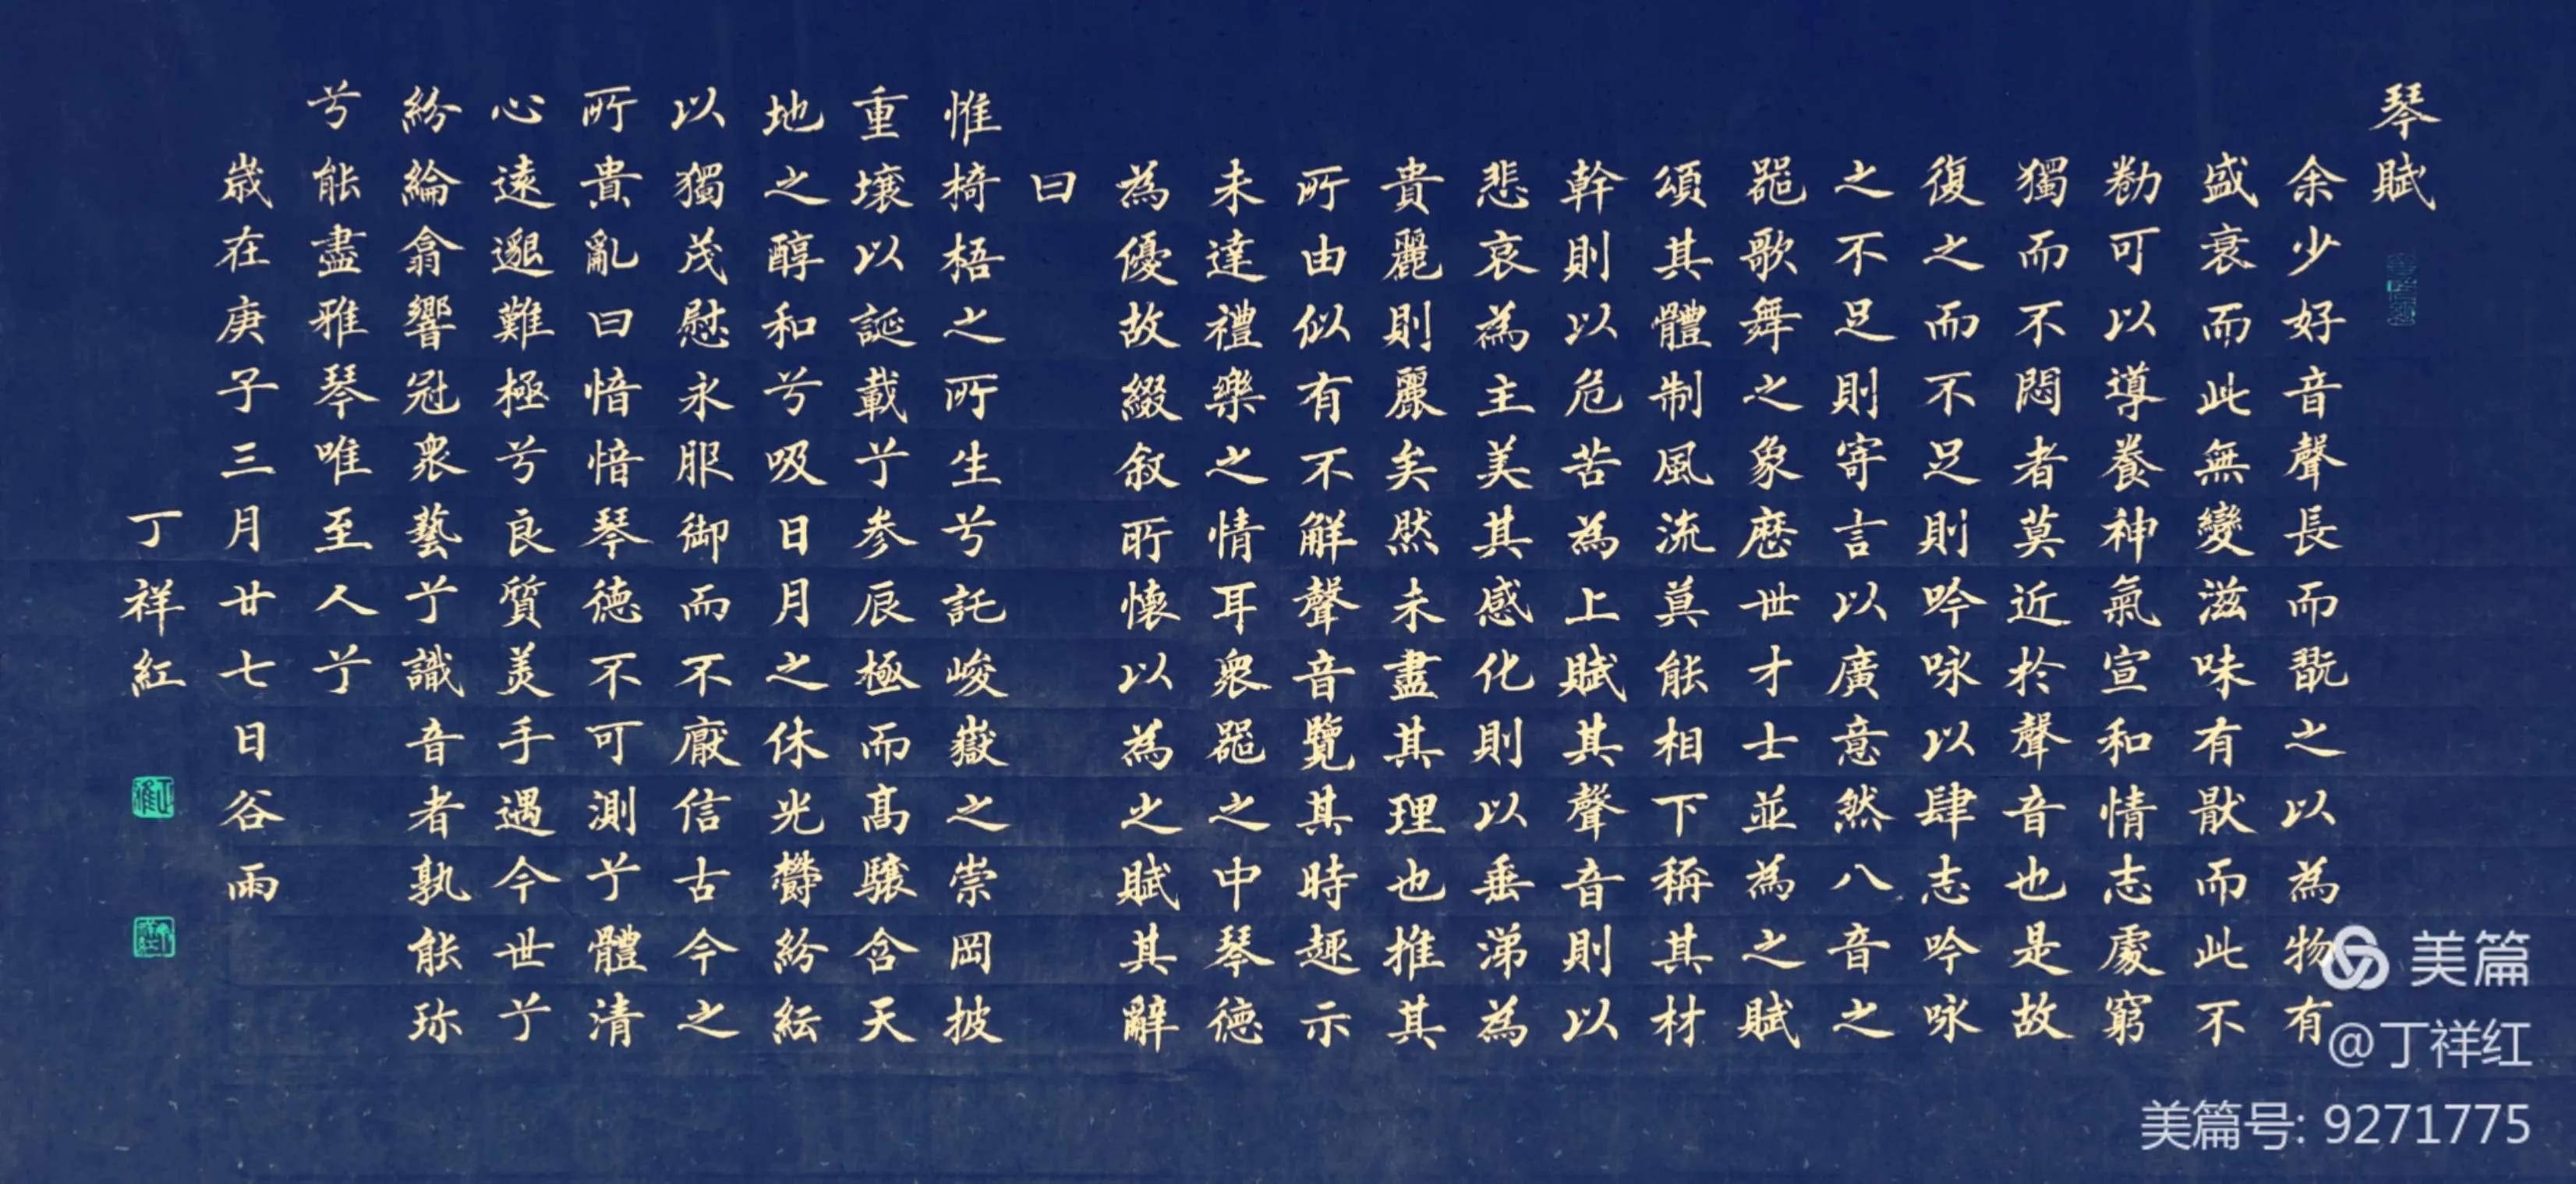 琴賦
余少好音聲長而翫之以為物有
盛衰而此無變滋味有猒而此不
勌可以導養神氣宣和情志處窮
獨而不悶者莫近於聲音也是故
復之而不足則吟咏以肆志吟咏
之不足則寄言以廣意然八音之
器歌舞之象歷世才士並為之賦
頌其體制風流莫能相下稱其材
幹則以危苦為上賦其聲音則以
悲哀為主美其感化則以垂涕為
貴麗則麗矣然未盡其理也推其
所由似有不解聲音覽其時趣示
未達禮樂之情耳衆器之中琴德
為優故綴叙所懷以為之賦其辭
曰
惟椅梧之所生兮託峻嶽之崇岡披
重壤以誕載兮参辰極而高驤含天
地之醇和兮吸日月之休光欝紛紜
以獨茂慰永服御而不厭信古今之
所貴亂曰愔愔琴德不可測兮體清
心遠邈難極兮良質美手遇今世兮
紛綸翕響冠衆藝兮識音者孰能珎
兮能盡雅琴唯至人兮
歲在庚子三月廿七日谷雨
丁祥紅
美篇
@丁祥红
美篇号: 9271775